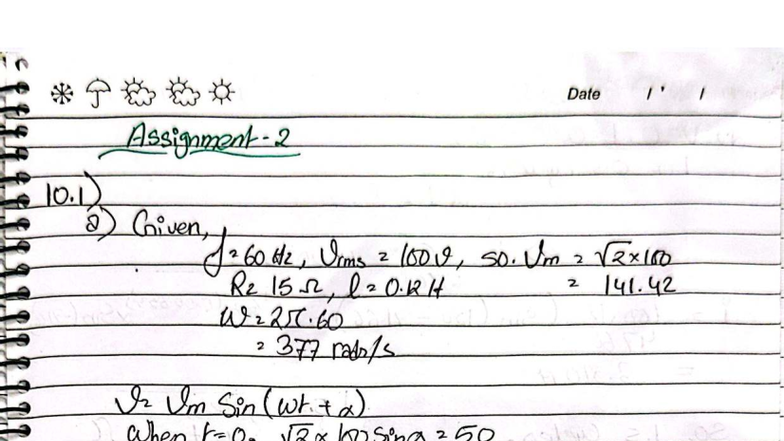 Date / ' /
Assignment-2
10.1)
a) Given,
f = 60 Hz, Vrms = 100 V, so. Vm = √2×100
R = 15 Ω, l = 0.12 H = 141.42
W = 2π.60
= 377 rads/s
V = Vm Sin (wt + α)
When t=0, √2 × 100 Sin α = 50